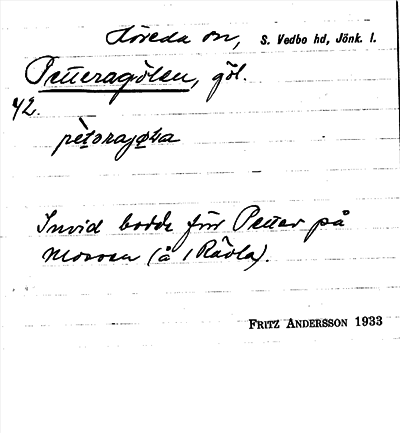 Höreda sn, S. Vedbo hd, Jönk. l.
Petteragölen, göl.
42.
Invid bodde för Petter på
Mossen (å 1 Rävla).
FRITZ ANDERSSON 1933